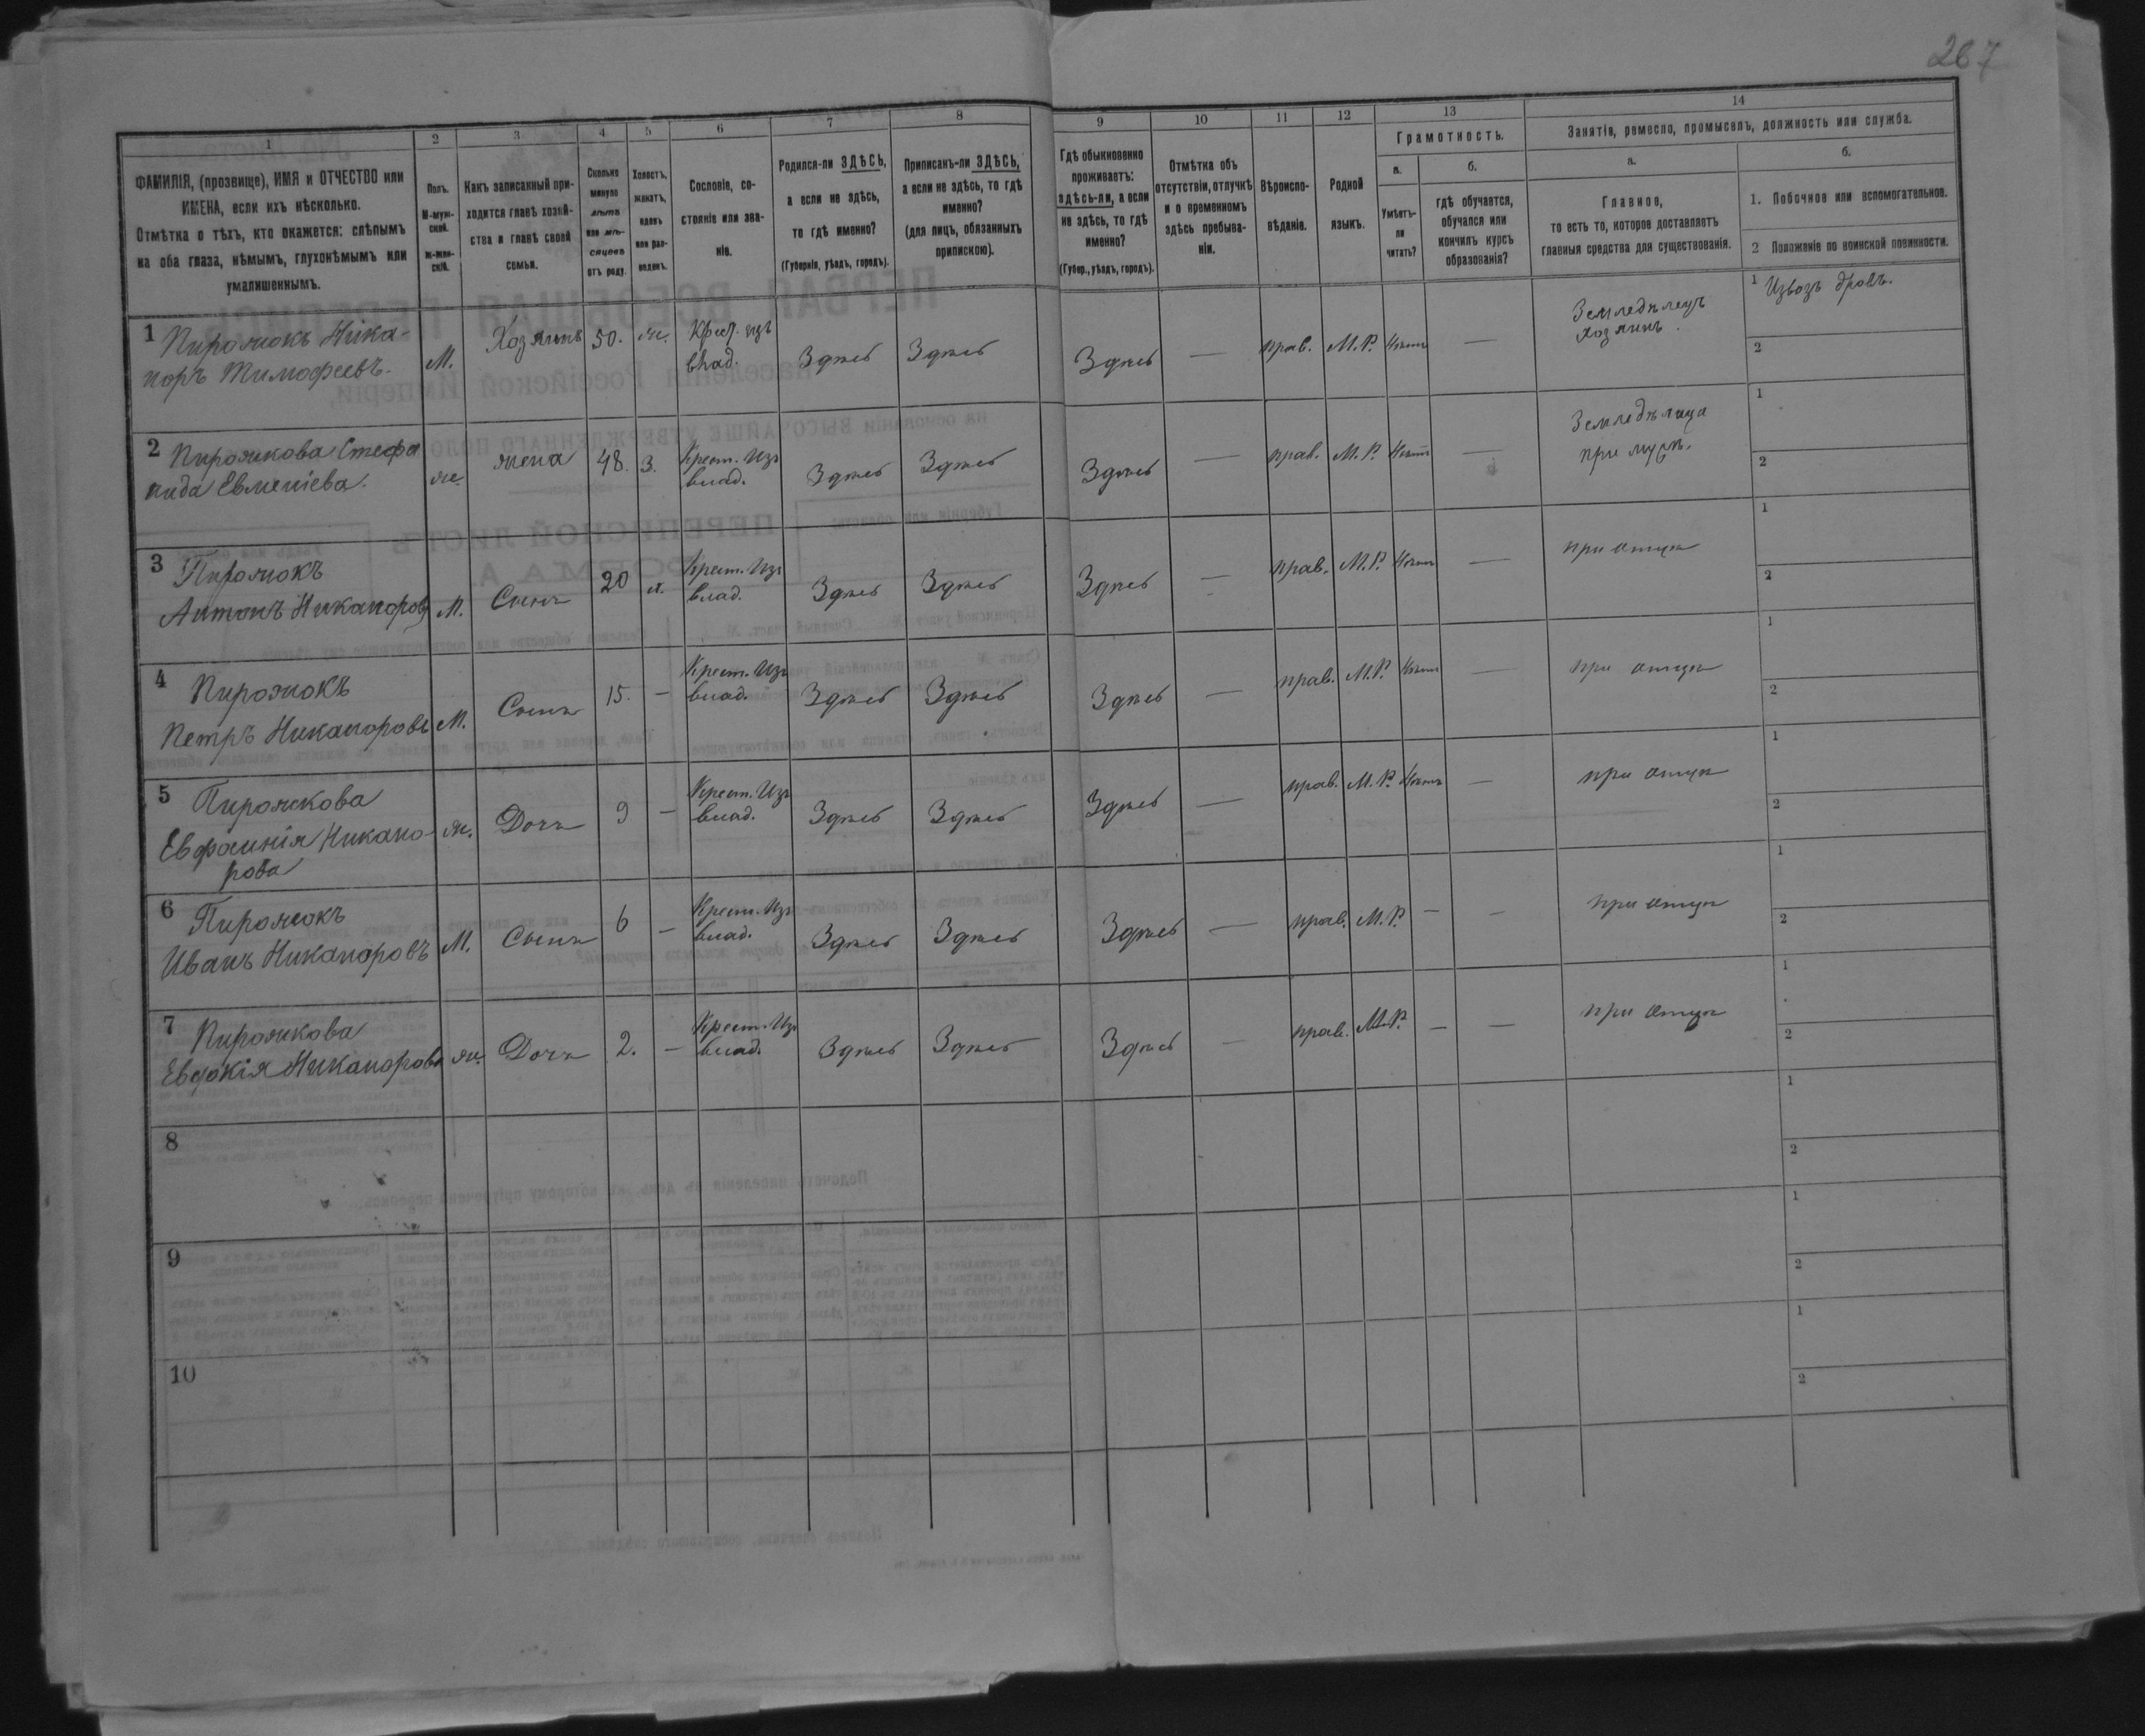 267
1
2
3
4
5
6
7
8
9
10
11
12
13
14
ФАМИЛІЯ, (прозвище), ИМЯ и ОТЧЕСТВО или
ИМЕНА, если ихъ нѣсколько.
Отмѣтка о тѣхъ, кто окажется: слѣпымъ
на оба глаза, нѣмымъ, глухонѣмымъ или
умалишеннымъ.
Полъ.
М-муж-
ской.
Ж-жен-
скій.
Какъ записанный при-
ходится главѣ хозяй-
ства и главѣ своей
семьи.
Сколько
минуло
лѣтъ
или мѣ-
сяцевъ
отъ роду.
Холостъ,
женатъ,
вдовъ
или раз-
веденъ.
Сословіе, со-
стояніе или зва-
ніе.
Родился-ли ЗДѢСЬ,
а если не здѣсь,
то гдѣ именно?
(Губернія, уѣздъ, городъ).
Приписанъ-ли ЗДѢСЬ,
а если не здѣсь, то гдѣ
именно?
(для лицъ, обязанныхъ
припискою).
Гдѣ обыкновенно
проживаетъ:
здѣсь-ли, а если
не здѣсь, то гдѣ
именно?
(Губер., уѣздъ, городъ).
Отмѣтка объ
отсутствіи, отлучкѣ
и о временномъ
здѣсь пребыва-
ніи.
Вѣроиспо-
вѣданіе.
Родной
языкъ.
Грамотность.
а.
Умѣетъ-
ли
читать?
б.
гдѣ обучается,
обучался или
кончилъ курсъ
образованія?
Занятія, ремесло, промыселъ, должность или служба.
а.
Главное,
то есть то, которое доставляетъ
главныя средства для существованія.
б.
1. Побочное или вспомогательное.
2 Положеніе по воинской повинности.
1 Пирожокъ Ника-
норъ Тимофеевъ.
М.
Хозяинъ
50.
ж.
Крест. изъ
влад.
Здѣсь
Здѣсь
Здѣсь
—
прав.
М.Р.
Нѣтъ
—
Земледѣлецъ
хозяинъ.
1 Извозъ дровъ.
2
2 Пирожкова Стефа
нида Евменіева.
ж.
жена
48.
З.
Крест. Изъ
влад.
Здѣсь
Здѣсь
Здѣсь
—
прав.
М.Р.
Нѣтъ
—
Земледѣлица
при мужѣ.
1
2
3 Пирожокъ
Антонъ Никаноровъ
М.
Сынъ
20
х.
Крест. Изъ
влад.
Здѣсь
Здѣсь
Здѣсь
—
прав.
М.Р.
Нѣтъ
—
при отцѣ
1
2
4 Пирожокъ
Петръ Никаноровъ
М.
Сынъ
15.
—
Крест. Изъ
влад.
Здѣсь
Здѣсь
Здѣсь
—
прав.
М.Р.
Нѣтъ
—
при отцѣ
1
2
5 Пирожкова
Евфимія Никано-
рова
ж.
Дочь
9
—
Крест. Изъ
влад.
Здѣсь
Здѣсь
Здѣсь
—
прав.
М.Р.
Нѣтъ
—
при отцѣ
1
2
6 Пирожокъ
Иванъ Никаноровъ
М.
Сынъ
6
—
Крест. Изъ
влад.
Здѣсь
Здѣсь
Здѣсь
—
прав.
М.Р.
—
—
при отцѣ
1
2
7 Пирожкова
Евдокія Никанорова
ж.
Дочь
2.
—
Крест. Изъ
влад.
Здѣсь
Здѣсь
Здѣсь
—
прав.
М.Р.
—
—
при отцѣ
1
2
8
1
2
9
1
2
10
1
2